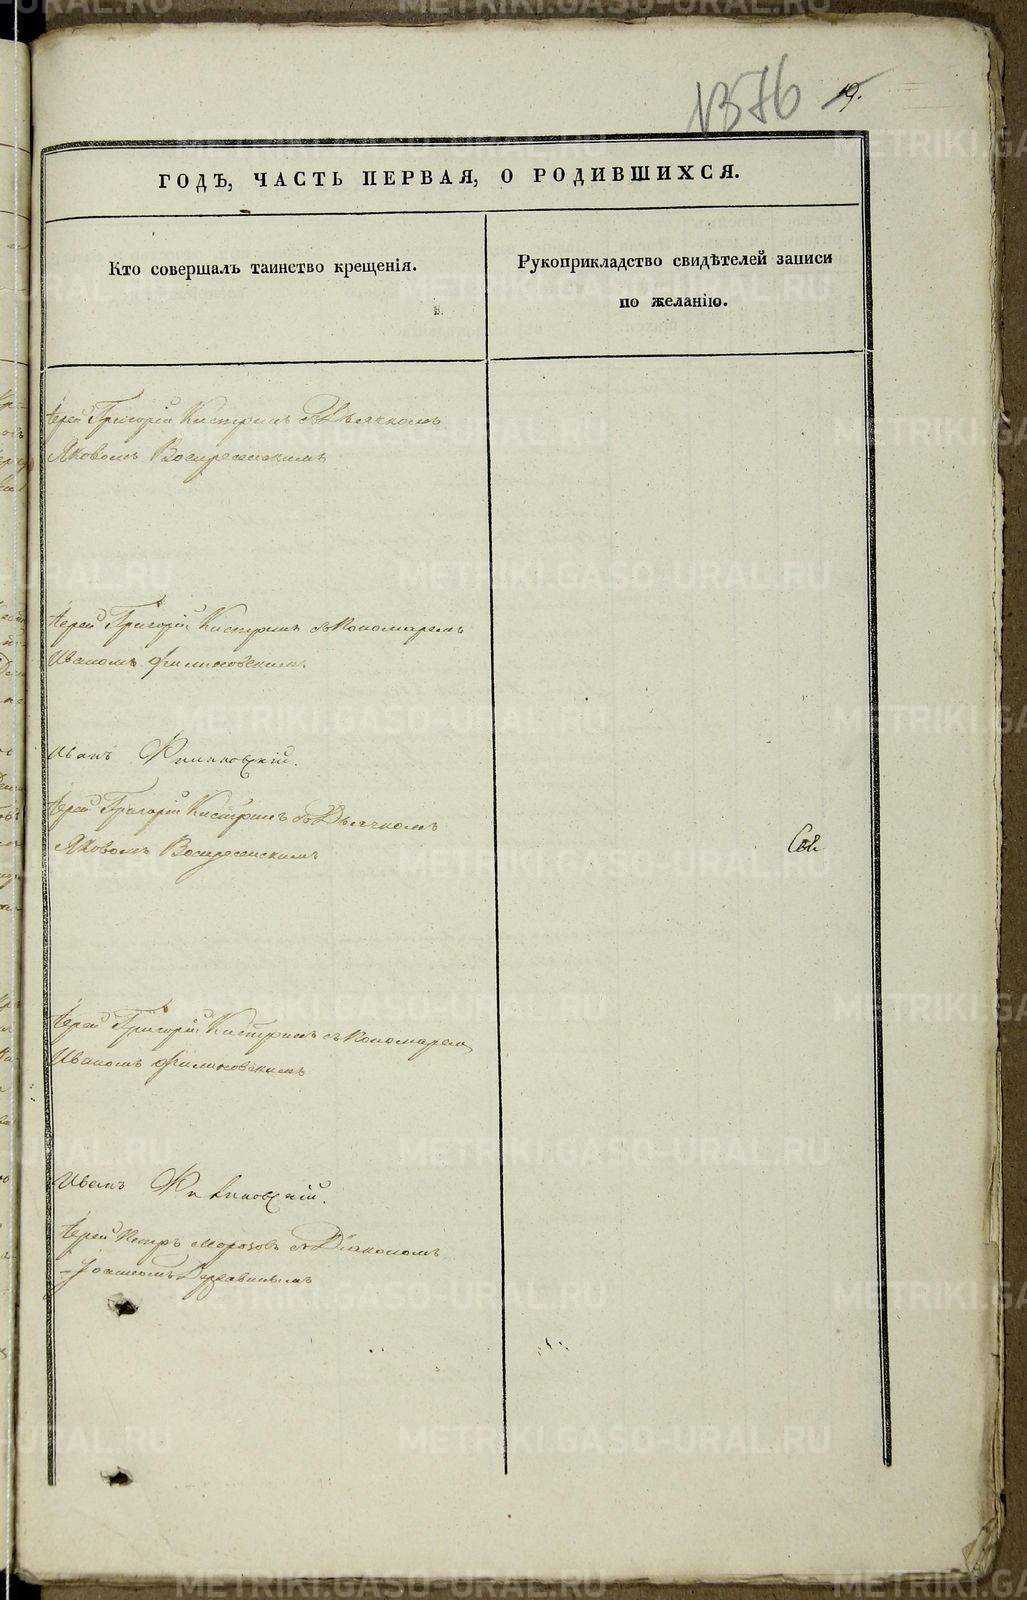 1376 19.
ГОДЪ, ЧАСТЬ ПЕРВАЯ, О РОДИВШИХСЯ.
Кто совершалъ таинство крещенія.
Рукоприкладство свидѣтелей записи
по желанію.
Іерей Григорій Кистринъ съ Дьячкомъ
Яковомъ Воскресенскимъ
Іерей Григорій Кистринъ съ Пономаремъ
Иваномъ Филиповскимъ
Иванъ Филиповскій.
Іерей Григорій Кистринъ съ Дьячкомъ
Яковомъ Воскресенскимъ
Іерей Григорій Кистринъ съ Пономаремъ
Иваномъ Филиповскимъ
Иванъ Филиповскій.
Іерей Петръ Морозовъ съ Діакономъ
Іоанномъ Державинымъ
METRIKI.GASO-URAL.RU